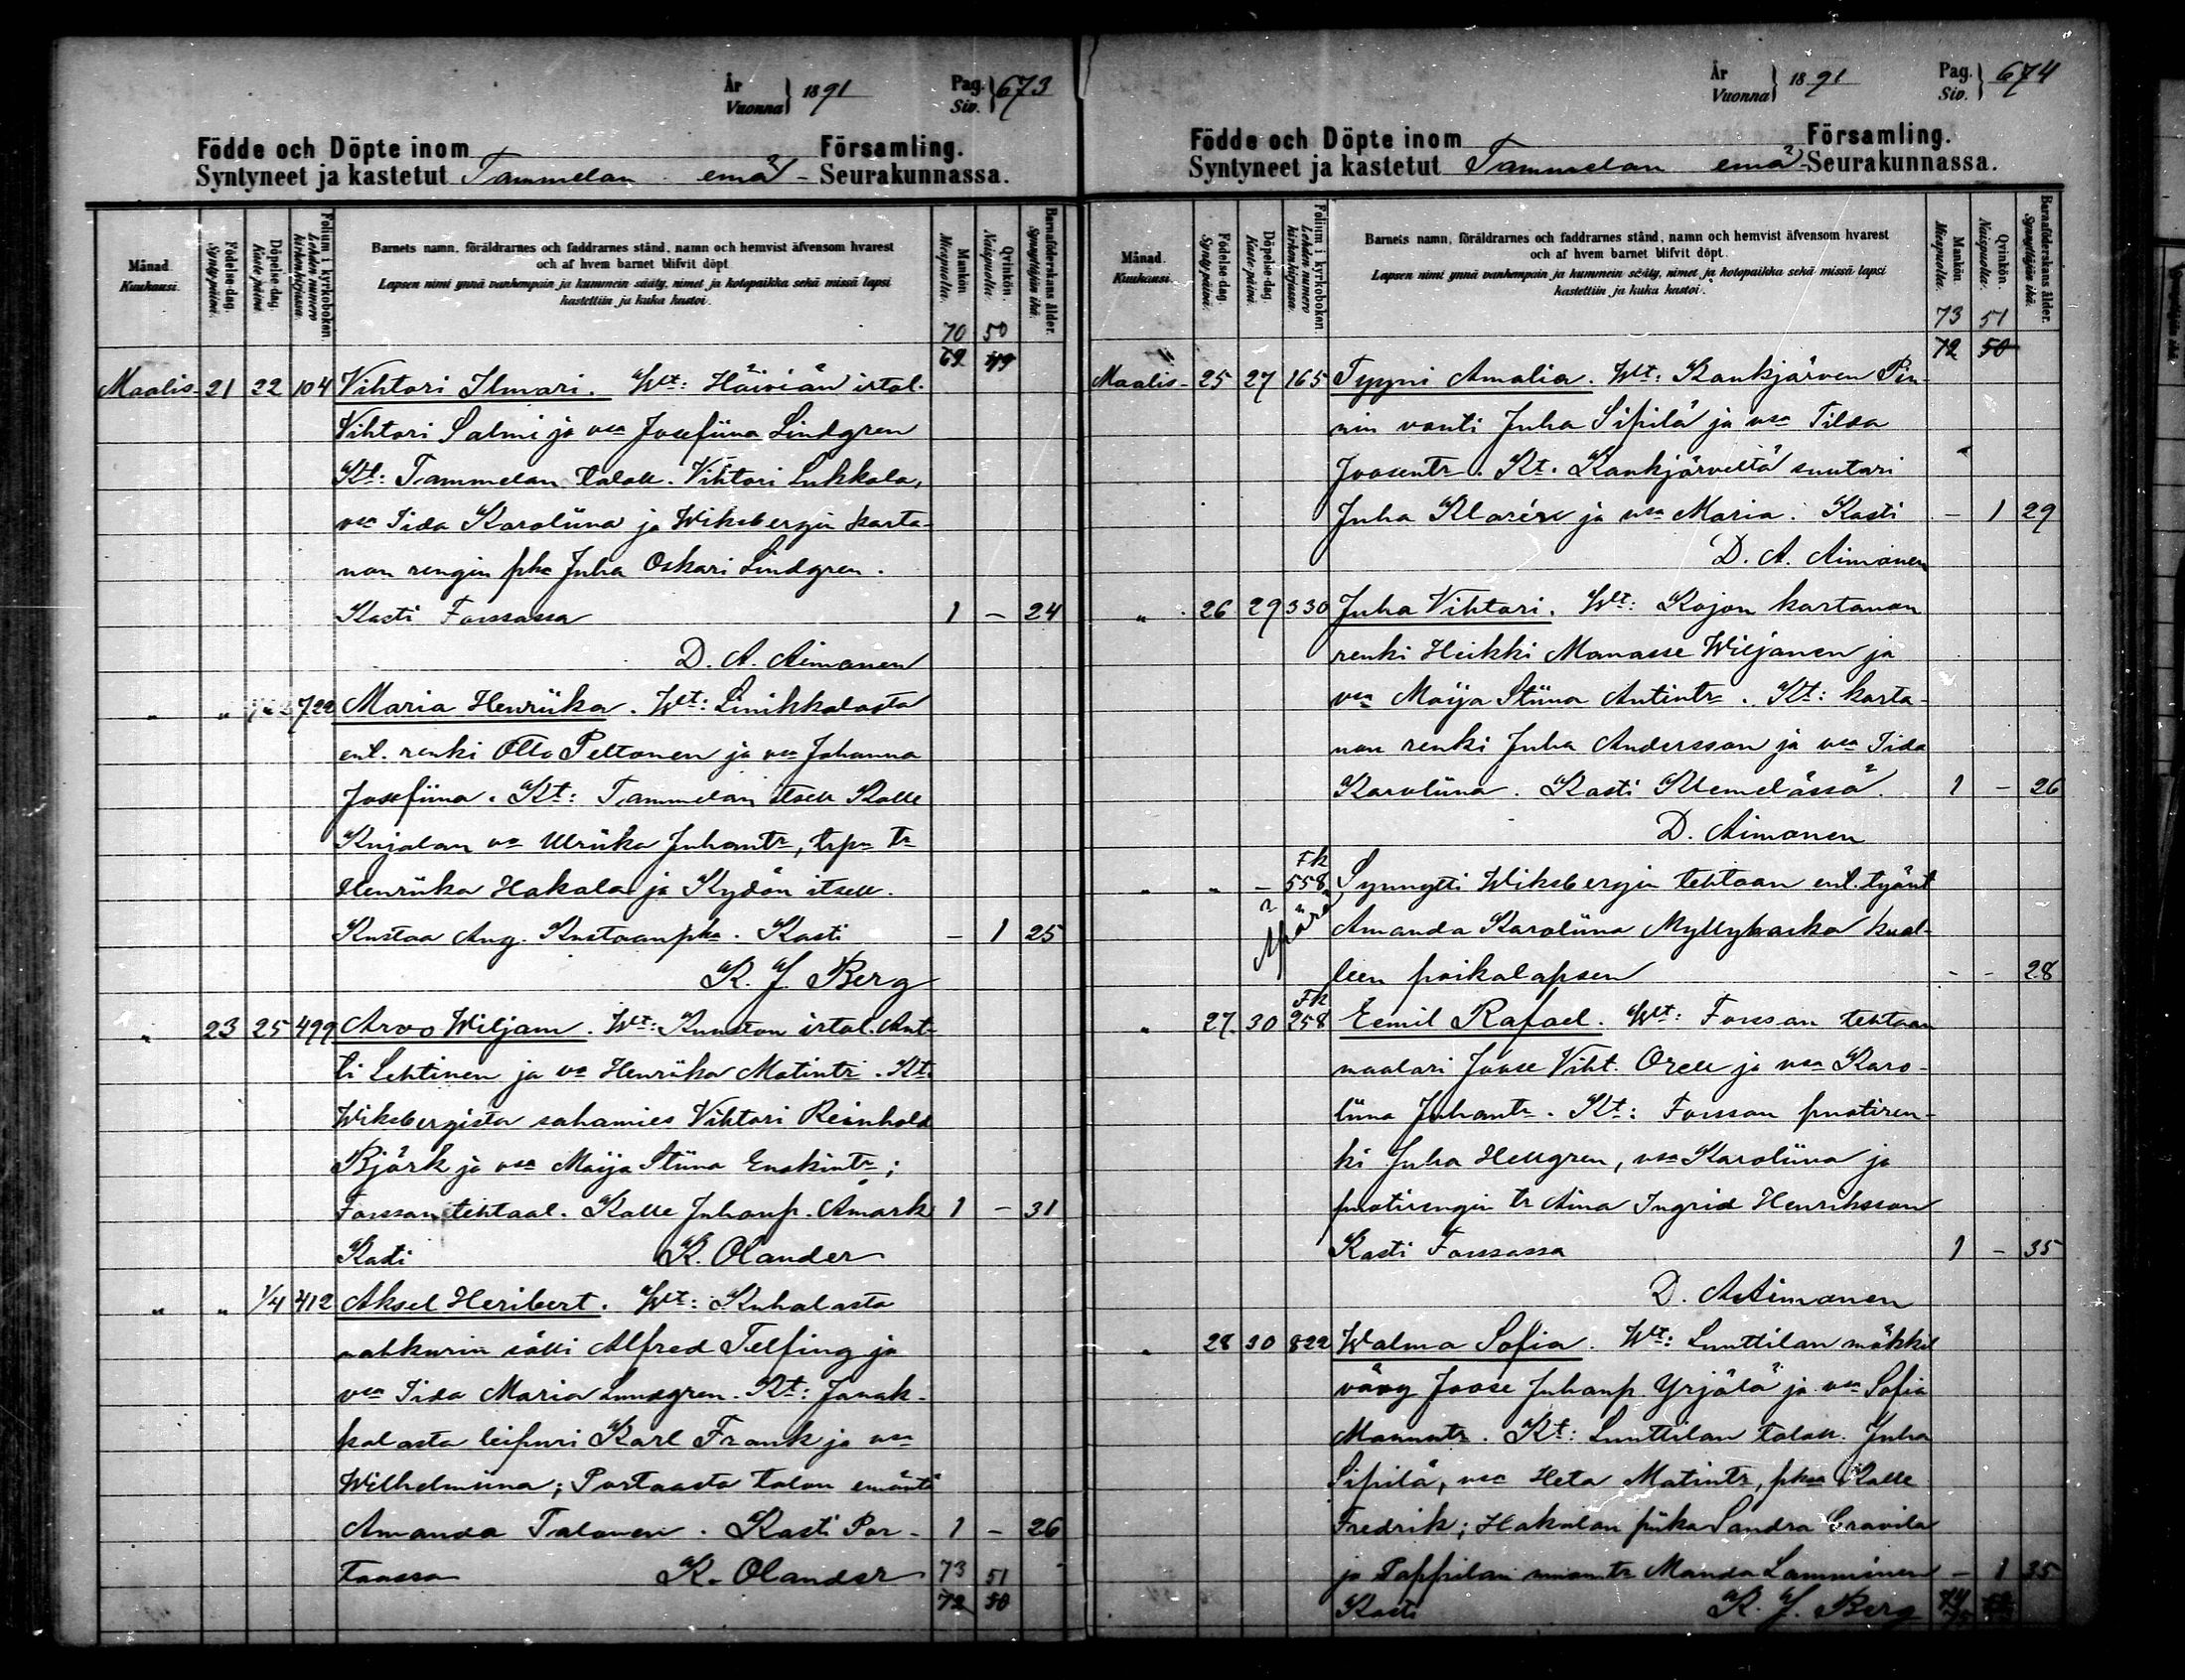 År
Vuonna } 1891
Pag.
Siv. } 673
Födde och Döpte inom Församling.
Syntyneet ja kastetut Tammelan emä- Seurakunnassa.
Månad. Kuukausi.
Födelse-dag. Synty-päivä.
Döpelse-dag. Kaste-päivä.
Folium i kyrkoboken. Lehden numero kirkonkirjassa.
Barnets namn, föräldrarnes och faddrarnes stånd, namn och hemvist äfvensom hvarest
och af hvem barnet blifvit döpt.
Lapsen nimi ynnä vanhempain ja kummein sääty, nimet ja kotopaikka sekä missä lapsi
kastettiin ja kuka kastoi.
Mankön. Miespuolta.
Qvinkön. Naispuolta.
Barnaföderskans ålder. Synnyttäjän ikä.
70 50
69 49
Maalis- 21 22 104 Vihtori Ilmari. Wt: Häiviän irtol.
Vihtori Salmi ja vsa Josefiina Lindgren
Kt: Tammelan taloll. Vihtori Lukkala,
vsa Iida Karoliina ja Wiksbergin karta-
non rengin pka Juha Oskari Lindgren.
Kasti Forssassa 1 - 24
D. A. Aimonen
" " 722 Maria Henriika. Wt: Linikkalasta
ent. renki Otto Peltonen ja vsa Johanna
Josefiina. Kt: Tammelan itsell Kalle
Kujalan va Ulriika Juhantr, trp tr
Henriika Hakala ja Kydön itsell.
Kustaa Aug. Kustaanpka. Kasti - 1 25
K. J. Berg
" 23 25 499 Arvo Wiljam. Wt: Kunston irtol. Ant-
ti Lehtinen ja va Henriika Matintr. Kt:
Wiksbergista sahamies Vihtori Reinhold
Björk ja vsa Maija Stiina Enokintr;
Forssan tehtaal. Kalle Juhanp. Åmark 1 - 31
Kasti K. Olander
" " 1/4 412 Aksel Heribert. Wt: Kuhalasta
nahkurin sälli Alfred Telfing ja
vsa Iida Maria Lundgren. Kt: Janak-
kalasta leipuri Karl Frank ja vsa
Wilhelmiina; Portaasta talon emäntä
Amanda Talonen. Kasti Por- 1 - 26
taassa K. Olander 73 51
72 50
År
Vuonna } 1891
Pag.
Siv. } 674
Födde och Döpte inom Församling.
Syntyneet ja kastetut Tammelan emä- Seurakunnassa.
Månad. Kuukausi.
Födelse-dag. Synty-päivä.
Döpelse-dag. Kaste-päivä.
Folium i kyrkoboken. Lehden numero kirkonkirjassa.
Barnets namn, föräldrarnes och faddrarnes stånd, namn och hemvist äfvensom hvarest
och af hvem barnet blifvit döpt.
Lapsen nimi ynnä vanhempain ja kummein sääty, nimet ja kotopaikka sekä missä lapsi
kastettiin ja kuka kastoi.
Mankön. Miespuolta.
Qvinkön. Naispuolta.
Barnaföderskans ålder. Synnyttäjän ikä.
73 51
72 50
Maalis- 25 27 165 Tyyni Amalia. Wt: Kaukjärven Pin-
nin vouti Juha Sipilä ja vsa Tilda
Joosentr. Kt. Kaukjärveltä suutari
Juha Klarén ja vsa Maria. Kasti - 1 29
D. A. Aimonen
" 26 29 330 Juha Vihtori. Wt: Kojon kartanon
renki Heikki Manasse Wiljanen ja
vsa Maija Stiina Antintr. Kt: karta-
non renki Juha Andersson ja vsa Iida
Karoliina. Kasti Klemelässä. 1 - 26
D. Aimonen
" " - Fk 558 Synnytti Wiksbergin tehtaan ent. työnt
Äpärä Amanda Karoliina Myllyharka kuol-
leen poikalapsen - - 28
" 27 30 Fk 258 Eemil Rafael. Wt: Forssan tehtaan
maalari Joose Viht. Orell ja vsa Karo-
liina Juhantr. Kt: Forssan puotiren-
ki Juha Hellgren, vsa Karoliina ja
puotirengin tr Aina Ingrid Henriksson
Kasti Forssassa 1 - 35
D. A. Aimonen
" 28 30 822 Walma Sofia. Wt: Luuttilan mökkil
vävy Joose Juhanp. Yrjälä ja vsa Sofia
Mauntr. Kt: Luuttilan taloll. Juha
Sipilä, vsa Heta Matintr, pka Kalle
Fredrik; Hakalan piika Sandra Eravila
ja Pappilan tr Manda Lamminen - 1 35
Kasti K. J. Berg 74